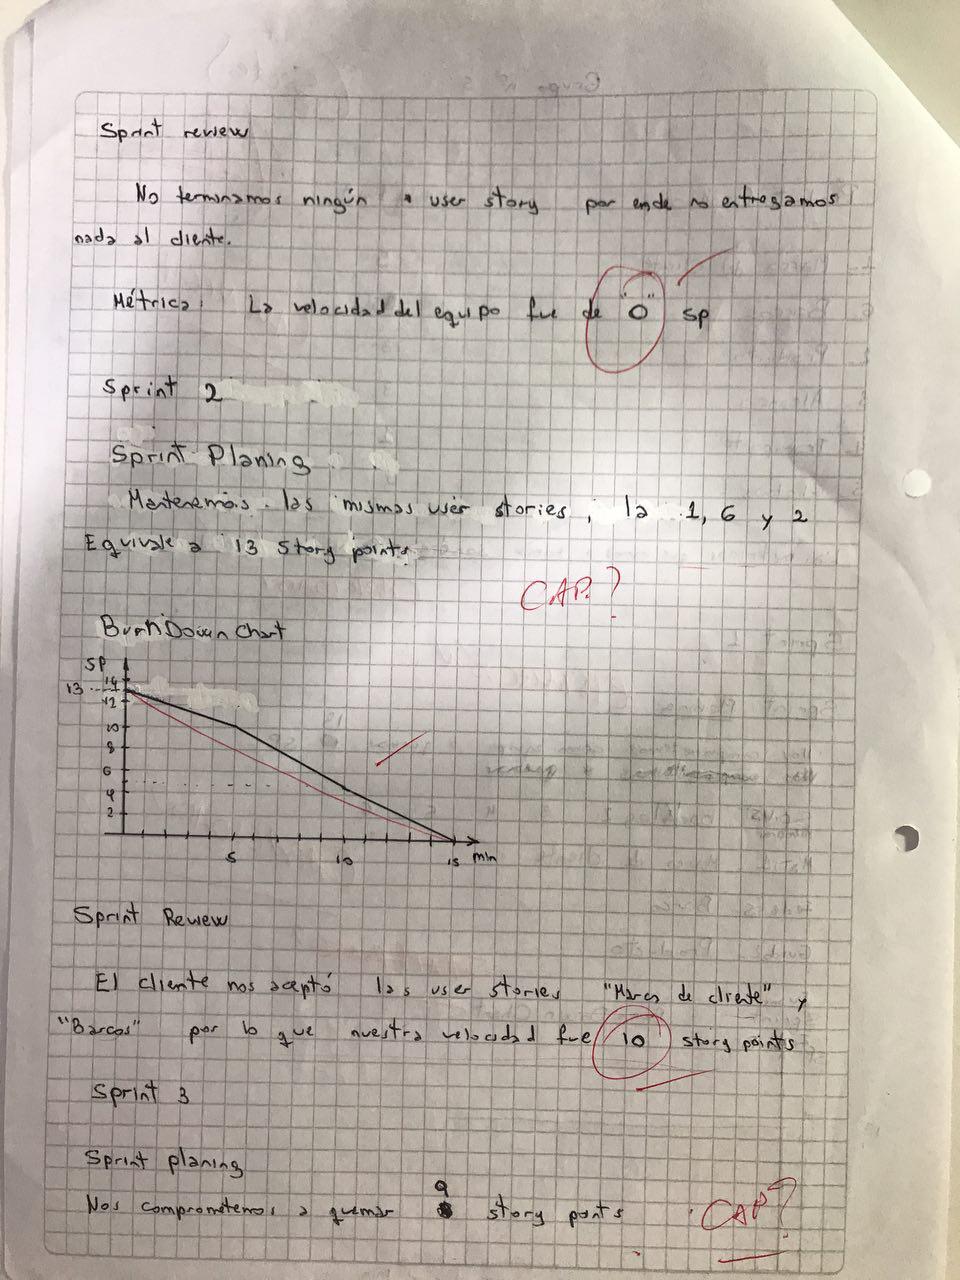 Sprint review
No terminamos ningún user story por ende no entregamos
nada al cliente.
Métrica: La velocidad del equipo fue de "0" SP
Sprint 2
Sprint Planing
Mantenemos las mismas user stories, la 1, 6 y 2
Equivale a 13 story points.
CAP.?
BurnDown chart
SP
14
13
12
10
8
6
4
2
5 10 15 min
Sprint Review
El cliente nos aceptó las user stories "Marca de cliente" y
"Barcos" por lo que nuestra velocidad fue 10 story points
Sprint 3
Sprint planing
9
Nos comprometemos a quemar story points
CAP?